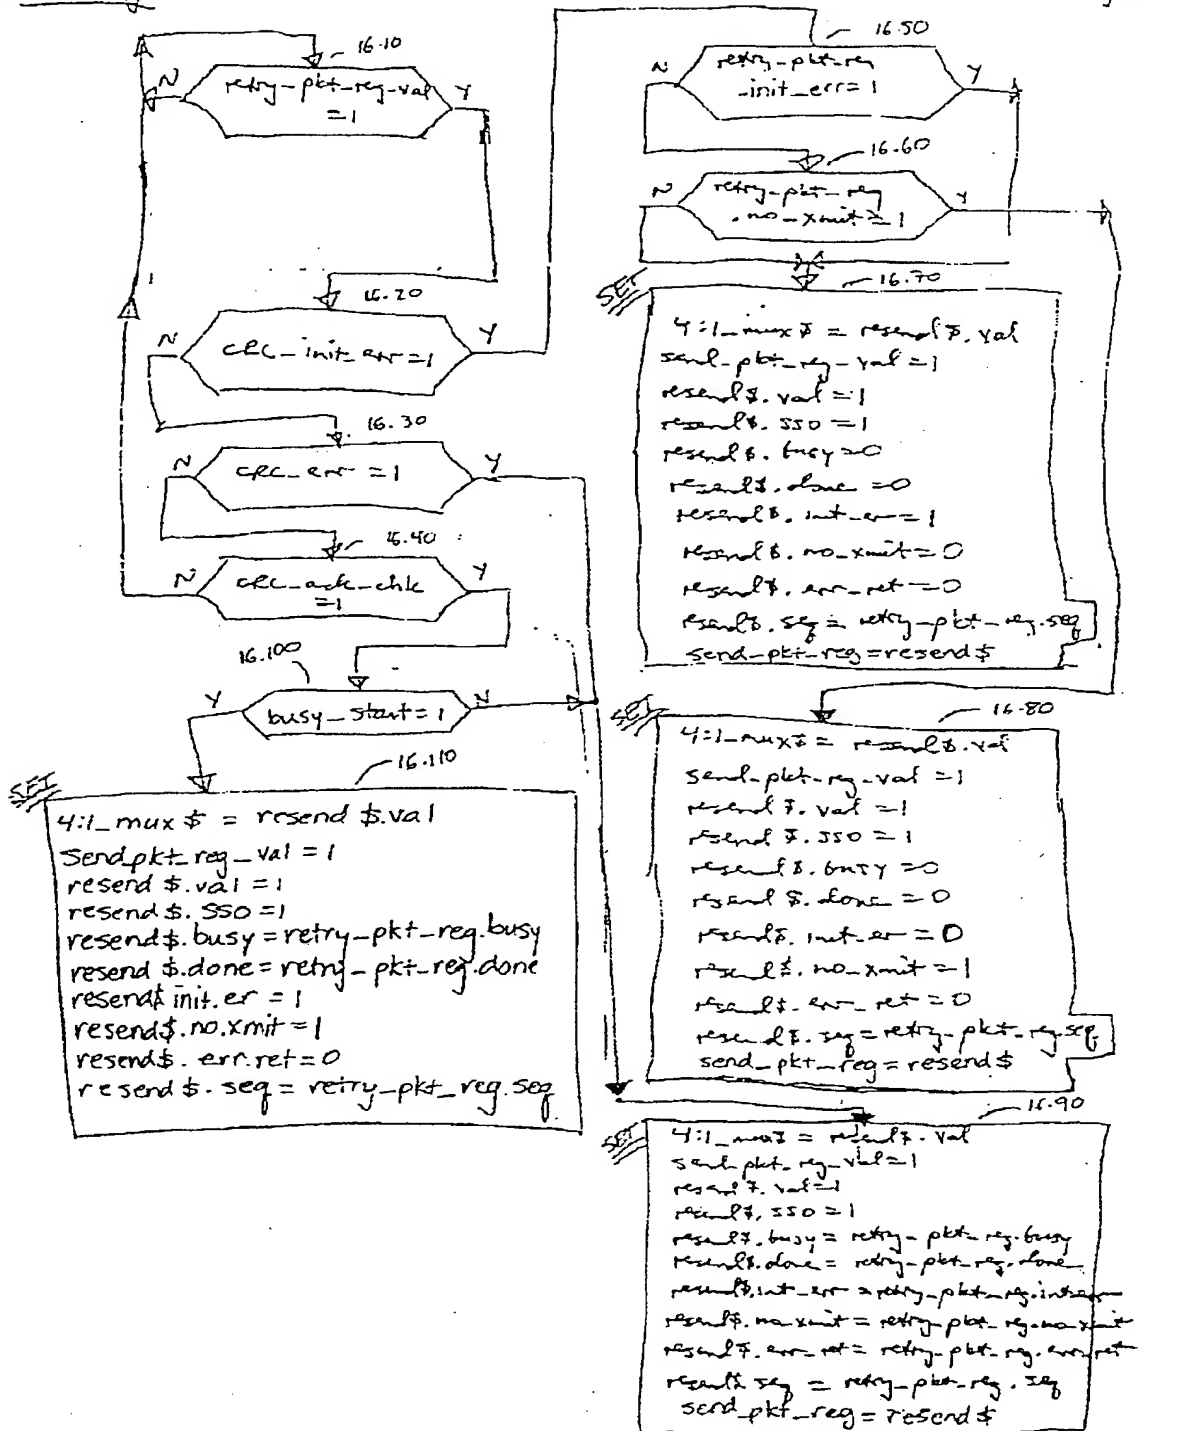 16.10
retry-pkt-reg-val
=1
N
Y
16.20
CRC_init_err=1
N
Y
16.30
CRC_err =1
N
Y
16.40
CRC_ack_chk
=1
N
Y
16.100
busy_start=1
Y
N
16.110
SET
4:1_mux $ = resend $.val
Send_pkt_reg_val = 1
resend $.val=1
resend $. SSO =1
resend$.busy=retry_pkt_reg.busy
resend $.done=retry_pkt_reg.done
resend$ init.er = 1
resend$.no.xmit=1
resend$. err.ret=0
resend $. seq = retry_pkt_reg.seq
16.50
retry-pkt-reg
-init_err=1
N
Y
16.60
retry-pkt-reg
.no_xmit=1
N
Y
16.70
SET
4:1_mux $ = resend $. val
send_pkt_reg_val=1
resend $. val=1
resend $. SSO =1
resend $. busy=0
resend $. done =0
resend $. int_er=1
resend $. no_xmit=0
resend $. err_ret=0
resend $. seq = retry_pkt_reg.seq
send_pkt_reg=resend $
16.80
SET
4:1_mux $ = resend $.val
send-pkt-reg_val =1
resend $. val =1
resend $. SSO = 1
resend $. busy =0
resend $. done = 0
resend $. init_er = 0
resend $. no_xmit = 1
resend $. err_ret = 0
resend $. seq = retry_pkt_reg.seq
send_pkt_reg = resend $
16.90
SET
4:1_mux $ = resend $. val
send pkt_reg_val=1
resend $. val=1
resend $. SSO =1
resend $.busy = retry_pkt_reg.busy
resend $.done= retry_pkt_reg.done
resend $.int_err = retry_pkt_reg.int_err
resend $. no_xmit = retry_pkt_reg.no_xmit
resend $. err_ret= retry_pkt_reg.err_ret
resend $ seq = retry_pkt_reg . seq
send_pkt_reg = resend $